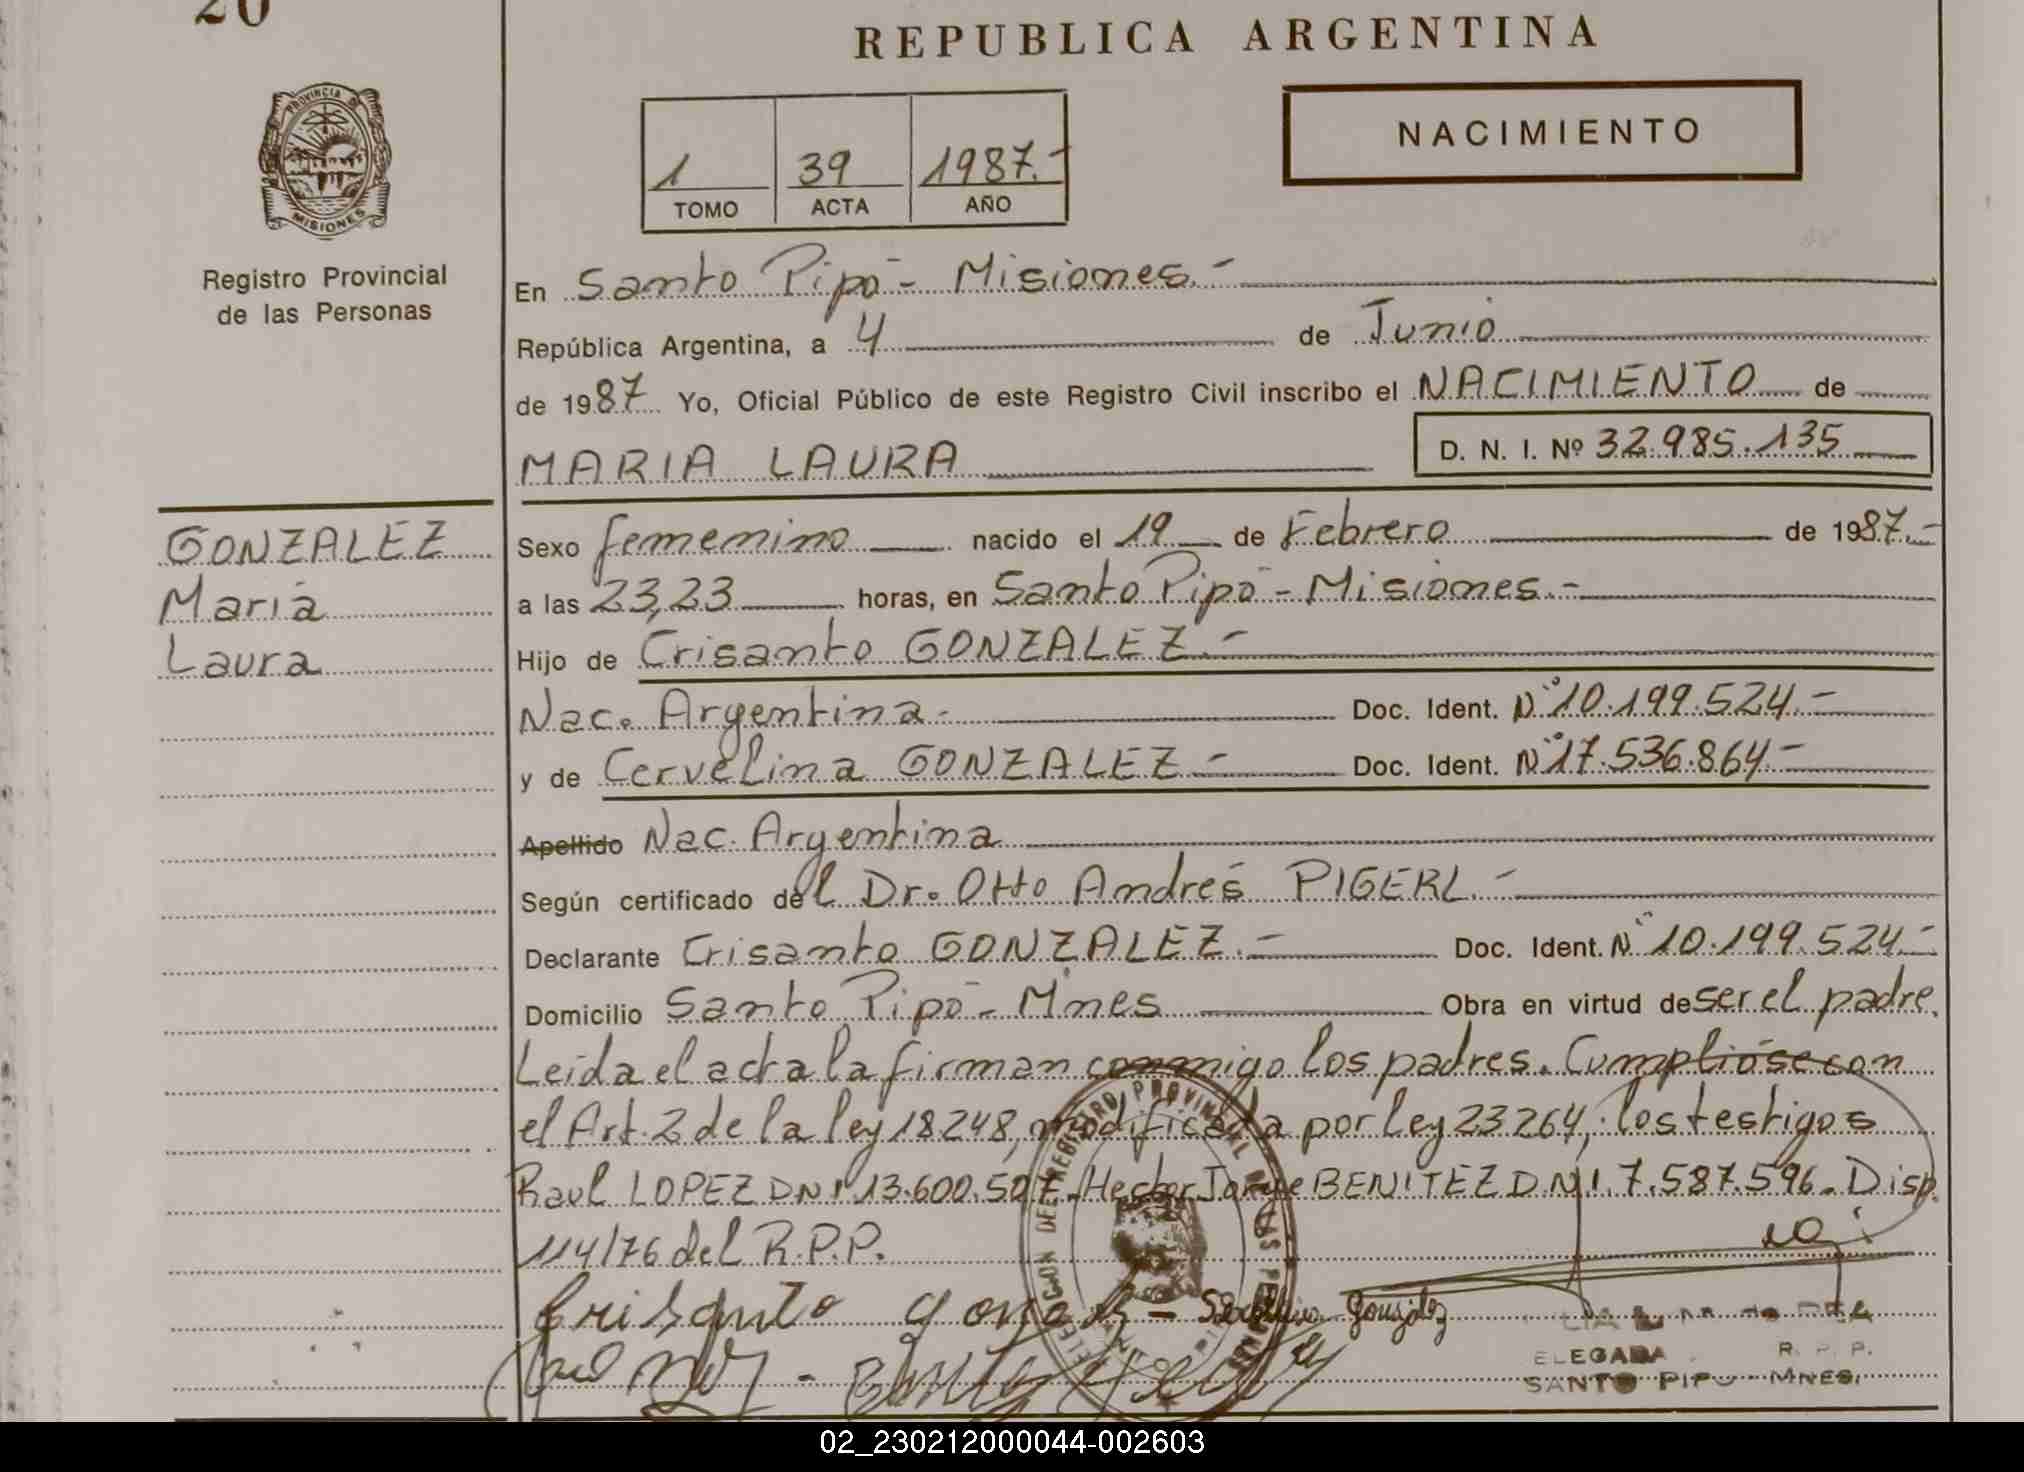 20
REPUBLICA ARGENTINA
PROVINCIA DE
MISIONES
Registro Provincial
de las Personas
1 39 1987.-
TOMO ACTA AÑO
NACIMIENTO
En Santo Pipó - Misiones.-
República Argentina, a 4 de Junio
de 1987 Yo, Oficial Público de este Registro Civil inscribo el NACIMIENTO de
MARIA LAURA D. N. I. Nº 32.985.135
GONZALEZ
Maria
Laura
Sexo femenino nacido el 19 de Febrero de 1987.-
a las 23,23 horas, en Santo Pipó - Misiones.-
Hijo de Crisanto GONZALEZ.-
Nac. Argentina.- Doc. Ident. Nº 10.199.524.-
y de Cervelina GONZALEZ.- Doc. Ident. Nº 17.536.864.-
Apellido Nac. Argentina
Según certificado del Dr. Otto Andrés PIGERL.-
Declarante Crisanto GONZALEZ.- Doc. Ident. Nº 10.199.524.-
Domicilio Santo Pipó - Mnes Obra en virtud de ser el padre.
Leida el acta la firman conmigo los padres. Cumplióse con
el Art. 2 de la ley 18248, modificada por ley 23264, los testigos
Raul LOPEZ DNI 13.600.507. Hector Jorge BENITEZ DNI. 7.587.596. Disp.
114/76 del R.P.P.
Crisanto Gonzalez - Gonzalez
ELEGADA R. P. P.
SANTO PIPO - MNES.
02_230212000044-002603